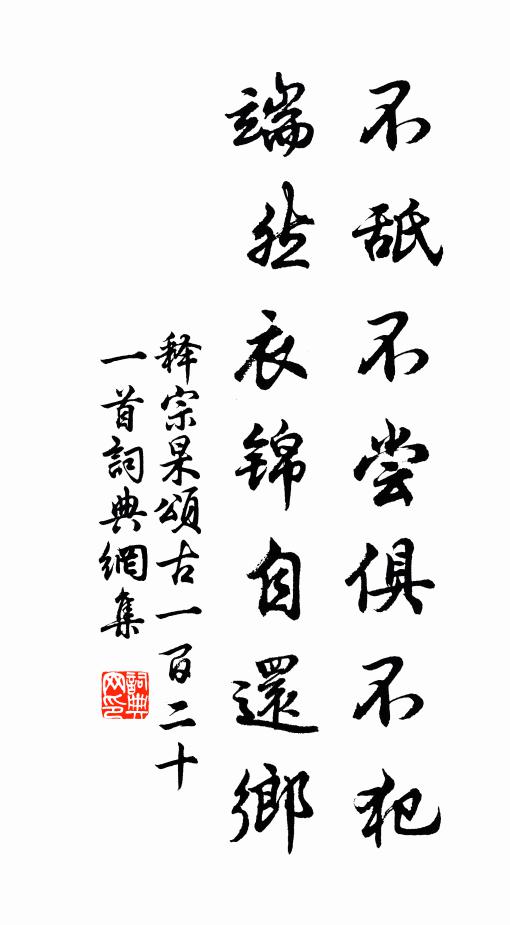 不舐不尝俱不犯
端然衣锦自還鄉
释宗杲頌古一百二十
一首詞典網集
詞典
网印